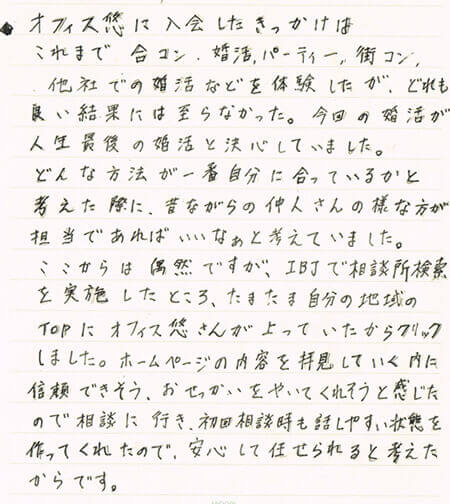 オフィス悠に入会したきっかけは
これまで合コン、婚活パーティー、街コン、
他社での婚活などを体験したが、どれも
良い結果には至らなかった。今回の婚活が
人生最後の婚活と決心していました。
どんな方法が一番自分に合っているかと
考えた際に、昔ながらの仲人さんの様な方が
担当であればいいなぁと考えていました。
ここからは偶然ですが、IBJで相談所検索
を実施したところ、たまたま自分の地域の
TOPにオフィス悠さんが上っていたからクリック
しました。ホームページの内容を拝見していく内に
信頼できそう、おせっかいをやいてくれそうと感じた
ので相談に行き、初回相談時も話しやすい状態を
作ってくれたので、安心して任せられると考えた
からです。